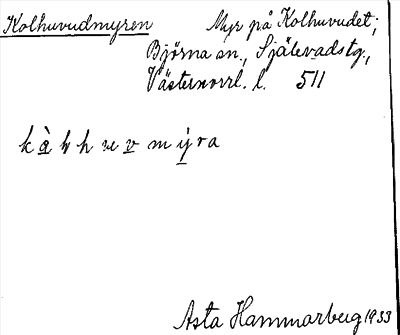 Kolhuvudmyren Myr på Kolhuvudet;
Björna sn., Själevadstg.,
Västernorrl. l. 511
Asta Hammarberg 1933